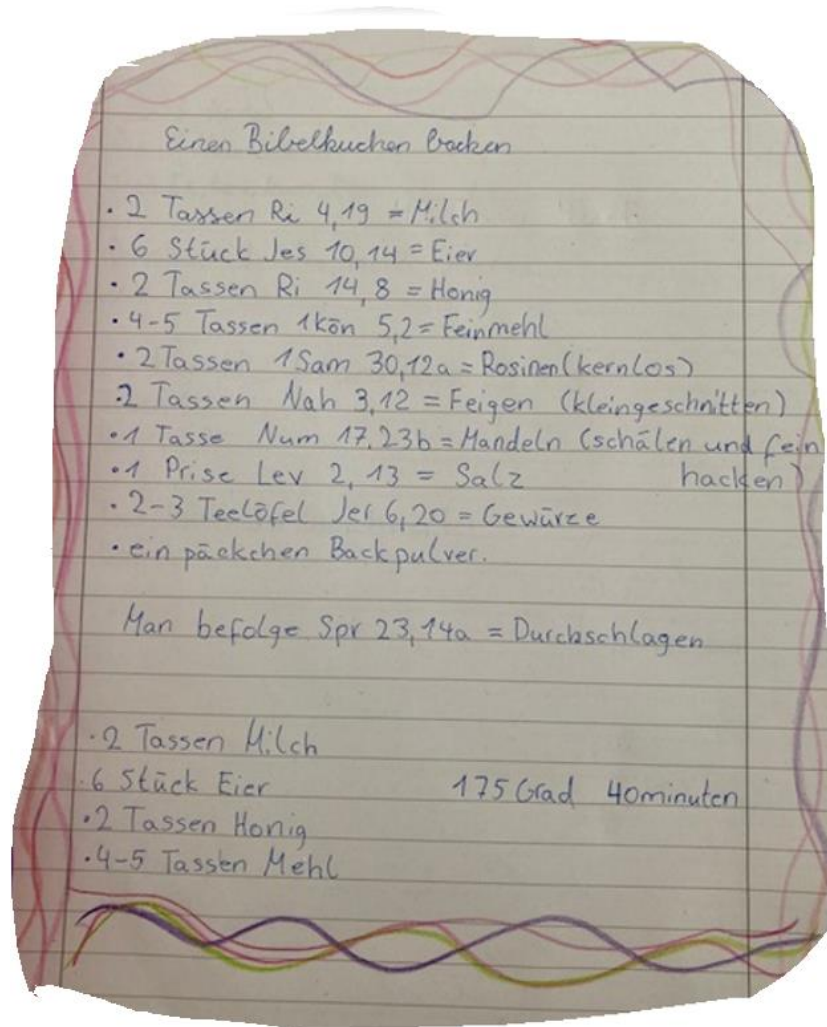 Einen Bibelkuchen backen
· 2 Tassen Ri 4,19 = Milch
· 6 Stück Jes 10,14 = Eier
· 2 Tassen Ri 14,8 = Honig
· 4-5 Tassen 1Kön 5,2 = Feinmehl
· 2 Tassen 1Sam 30,12a = Rosinen (kernlos)
· 2 Tassen Nah 3,12 = Feigen (kleingeschnitten)
· 1 Tasse Num 17,23b = Mandeln (schälen und fein
· 1 Prise Lev 2,13 = Salz hacken)
· 2-3 Teelöfel Jer 6,20 = Gewürze
· ein päckchen Backpulver.
Man befolge Spr 23,14a = Durchschlagen
· 2 Tassen Milch
· 6 Stück Eier 175 Grad 40minuten
· 2 Tassen Honig
· 4-5 Tassen Mehl